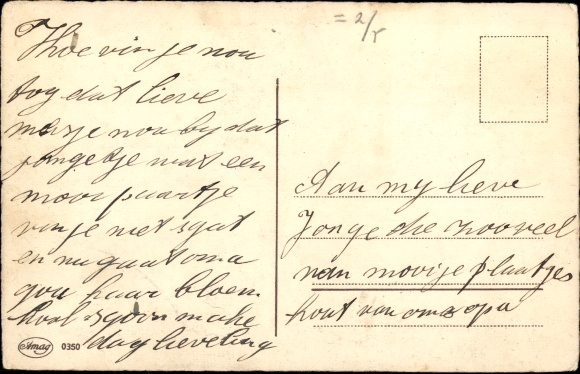 = 2/r
Hoe vin je nou
tog dat lieve
mesje nou by dat
jongetje mat een
mooi paartje
vin je niet sgat
en nu gaat oma
gou haar bloem
kool sgoon make
dag lieveling
Aan my lieve
Jonge die zooveel
van mooije plaatjes
hout van oma opa
Amag 0350